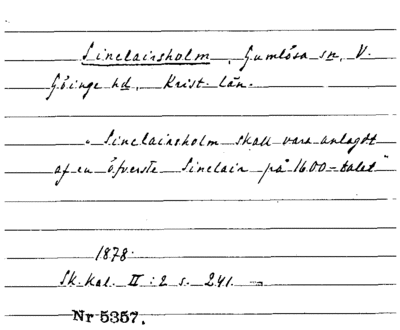 Sinclairsholm, Gumlösa sn, V.
Göinge hd, Krist. län.
"Sinclairsholm skall vara anlagdt
af en öfverste Sinclair på 1600-talet"
1878.
Sk. Kal. II:2 s. 241.
Nr 5357.